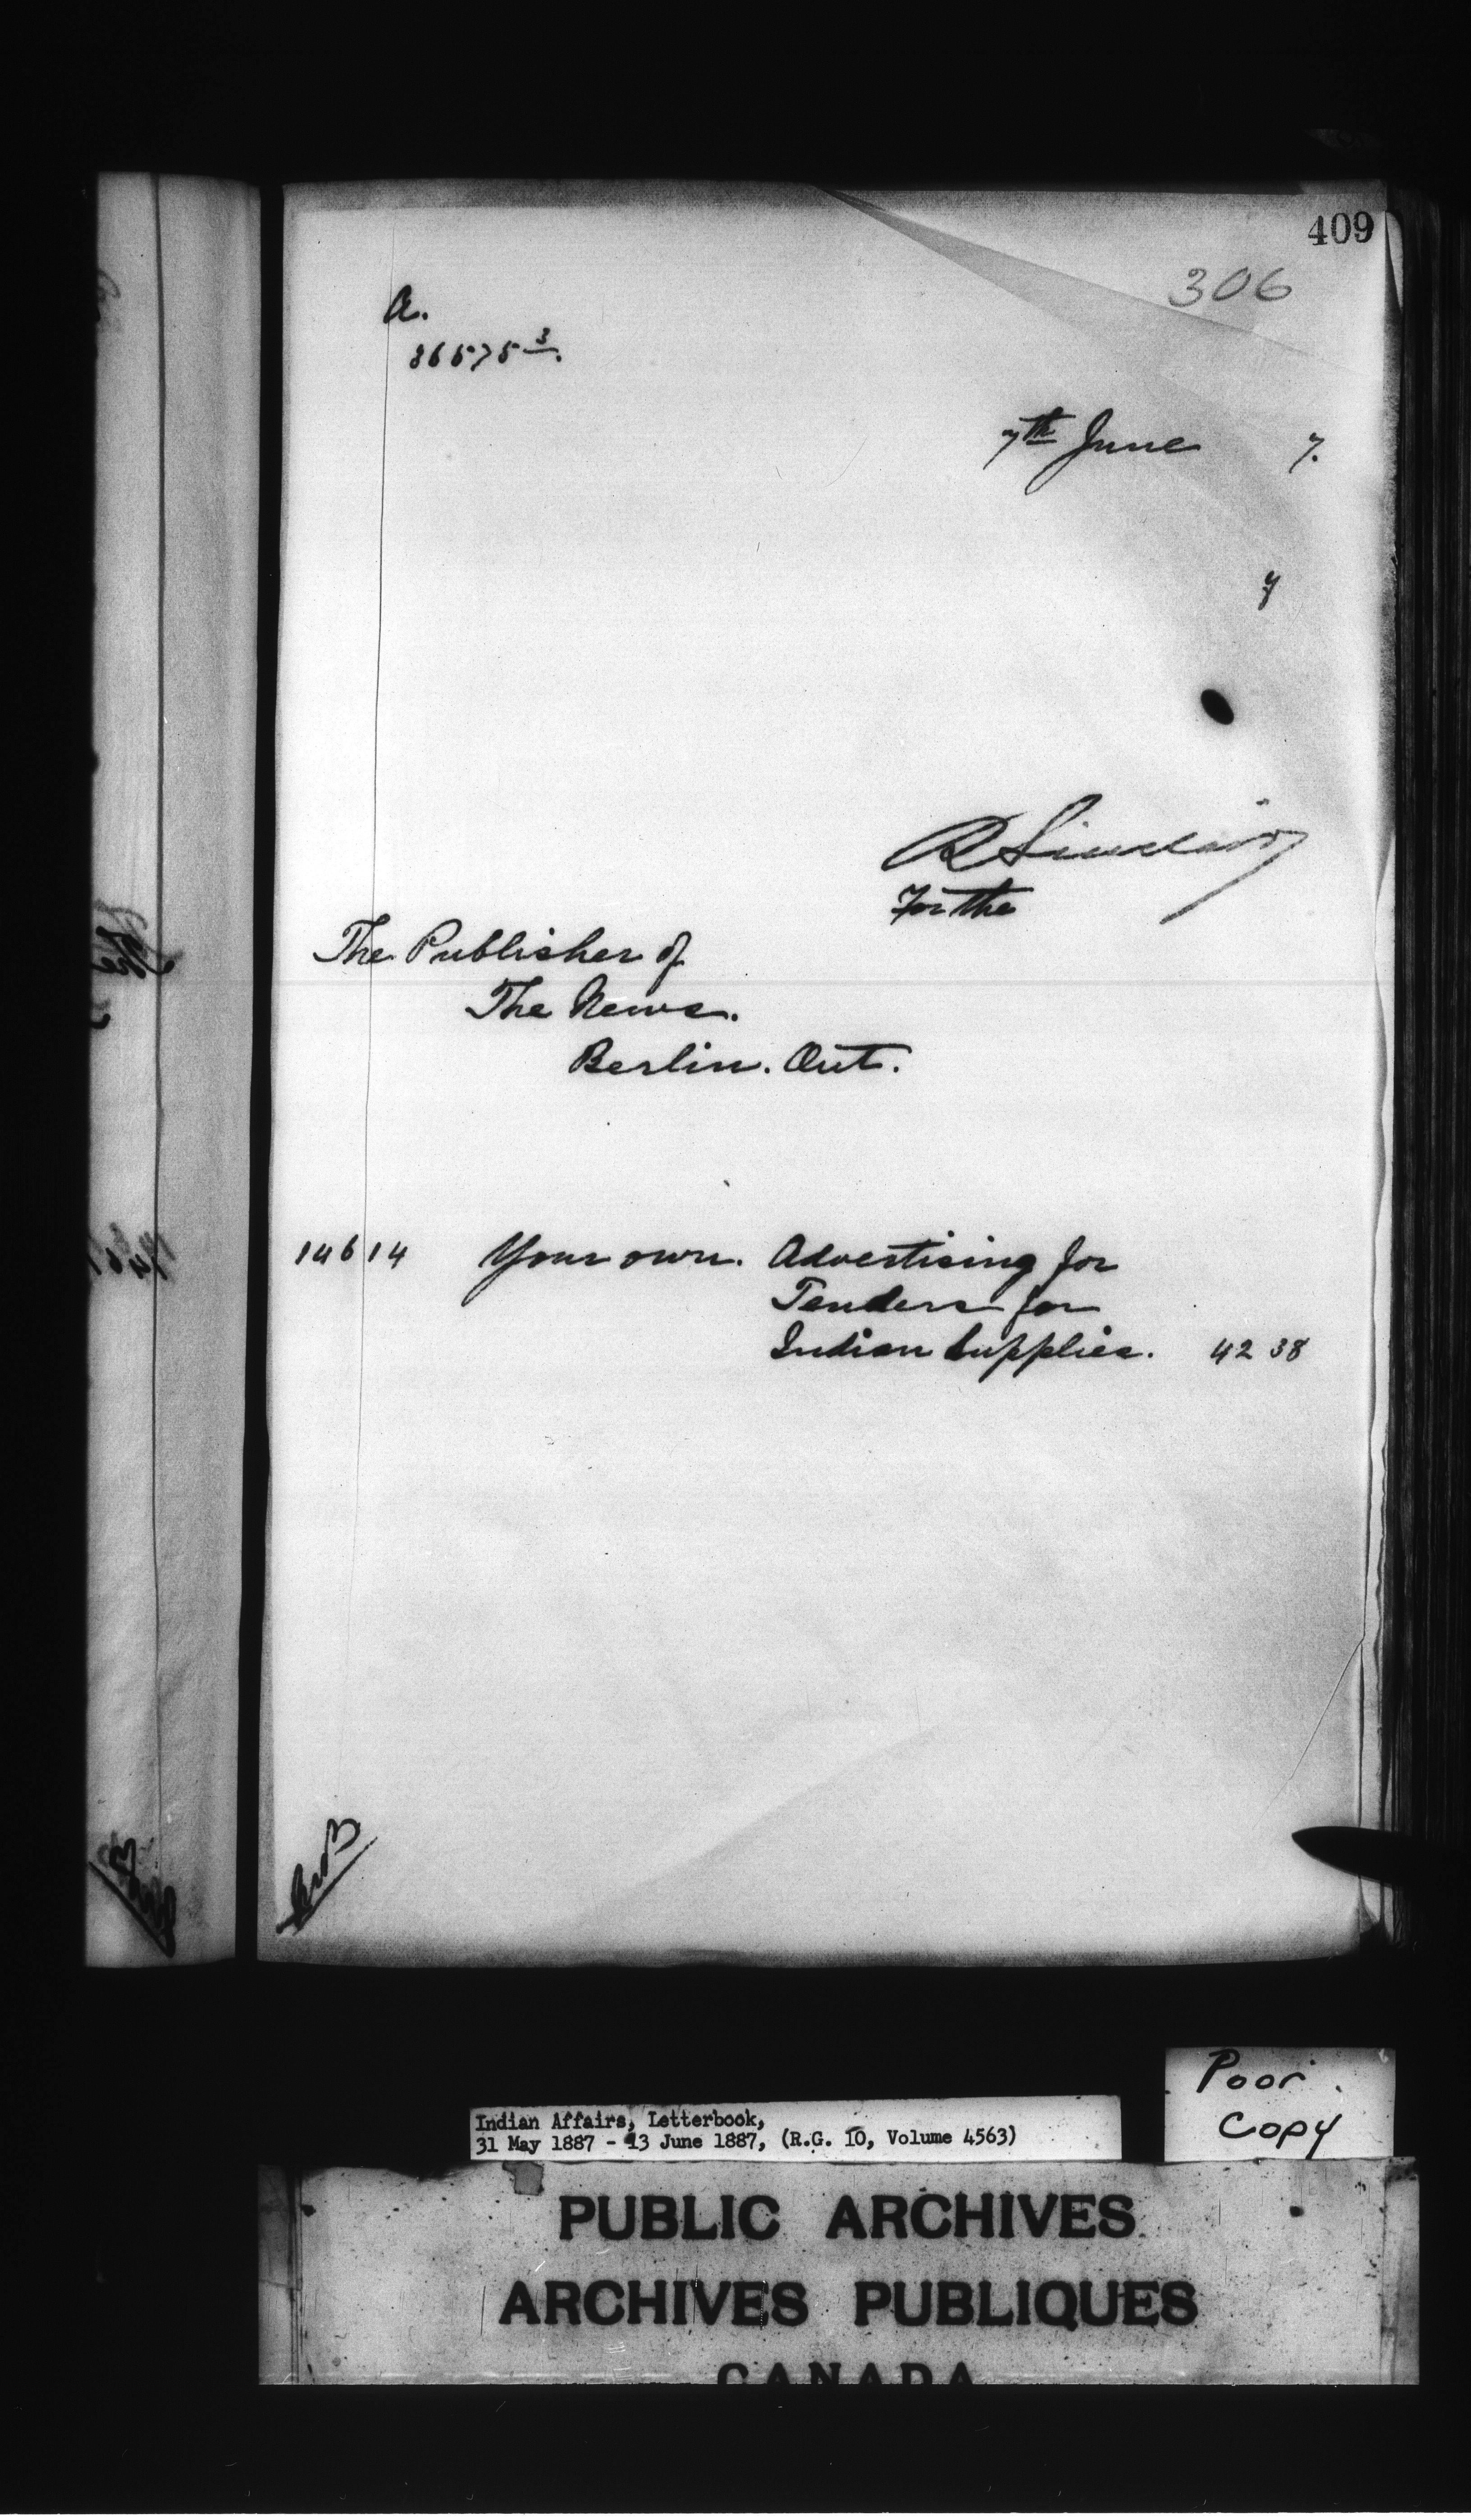 409
306
A.
86575 3.
7th June 7.
y
R Sinclair
For the
The Publisher of
The News.
Berlin. Ont.
14614 Your own. Advertising for
Tenders for
Indian Supplies. 42 38
Poor
Copy
Indian Affairs, Letterbook,
31 May 1887 - 13 June 1887, (R.G. 10, Volume 4563)
PUBLIC ARCHIVES
ARCHIVES PUBLIQUES
CANADA